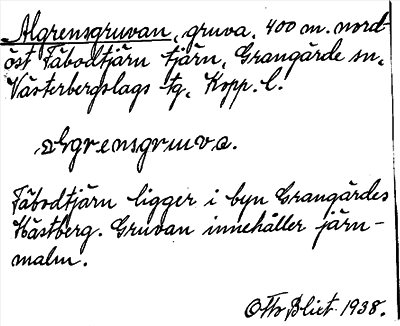 Algrensgruvan, gruva, 400 m. nord-
öst Fäbodtjärn tjärn, Grangärde sn,
Västerbergslags tg, Kopp. l.
algrensgruva.
Fäbodtjärn ligger i byn Grangärdes
Hästberg. Gruvan innehåller järn-
malm.
Otto Blixt 1938.